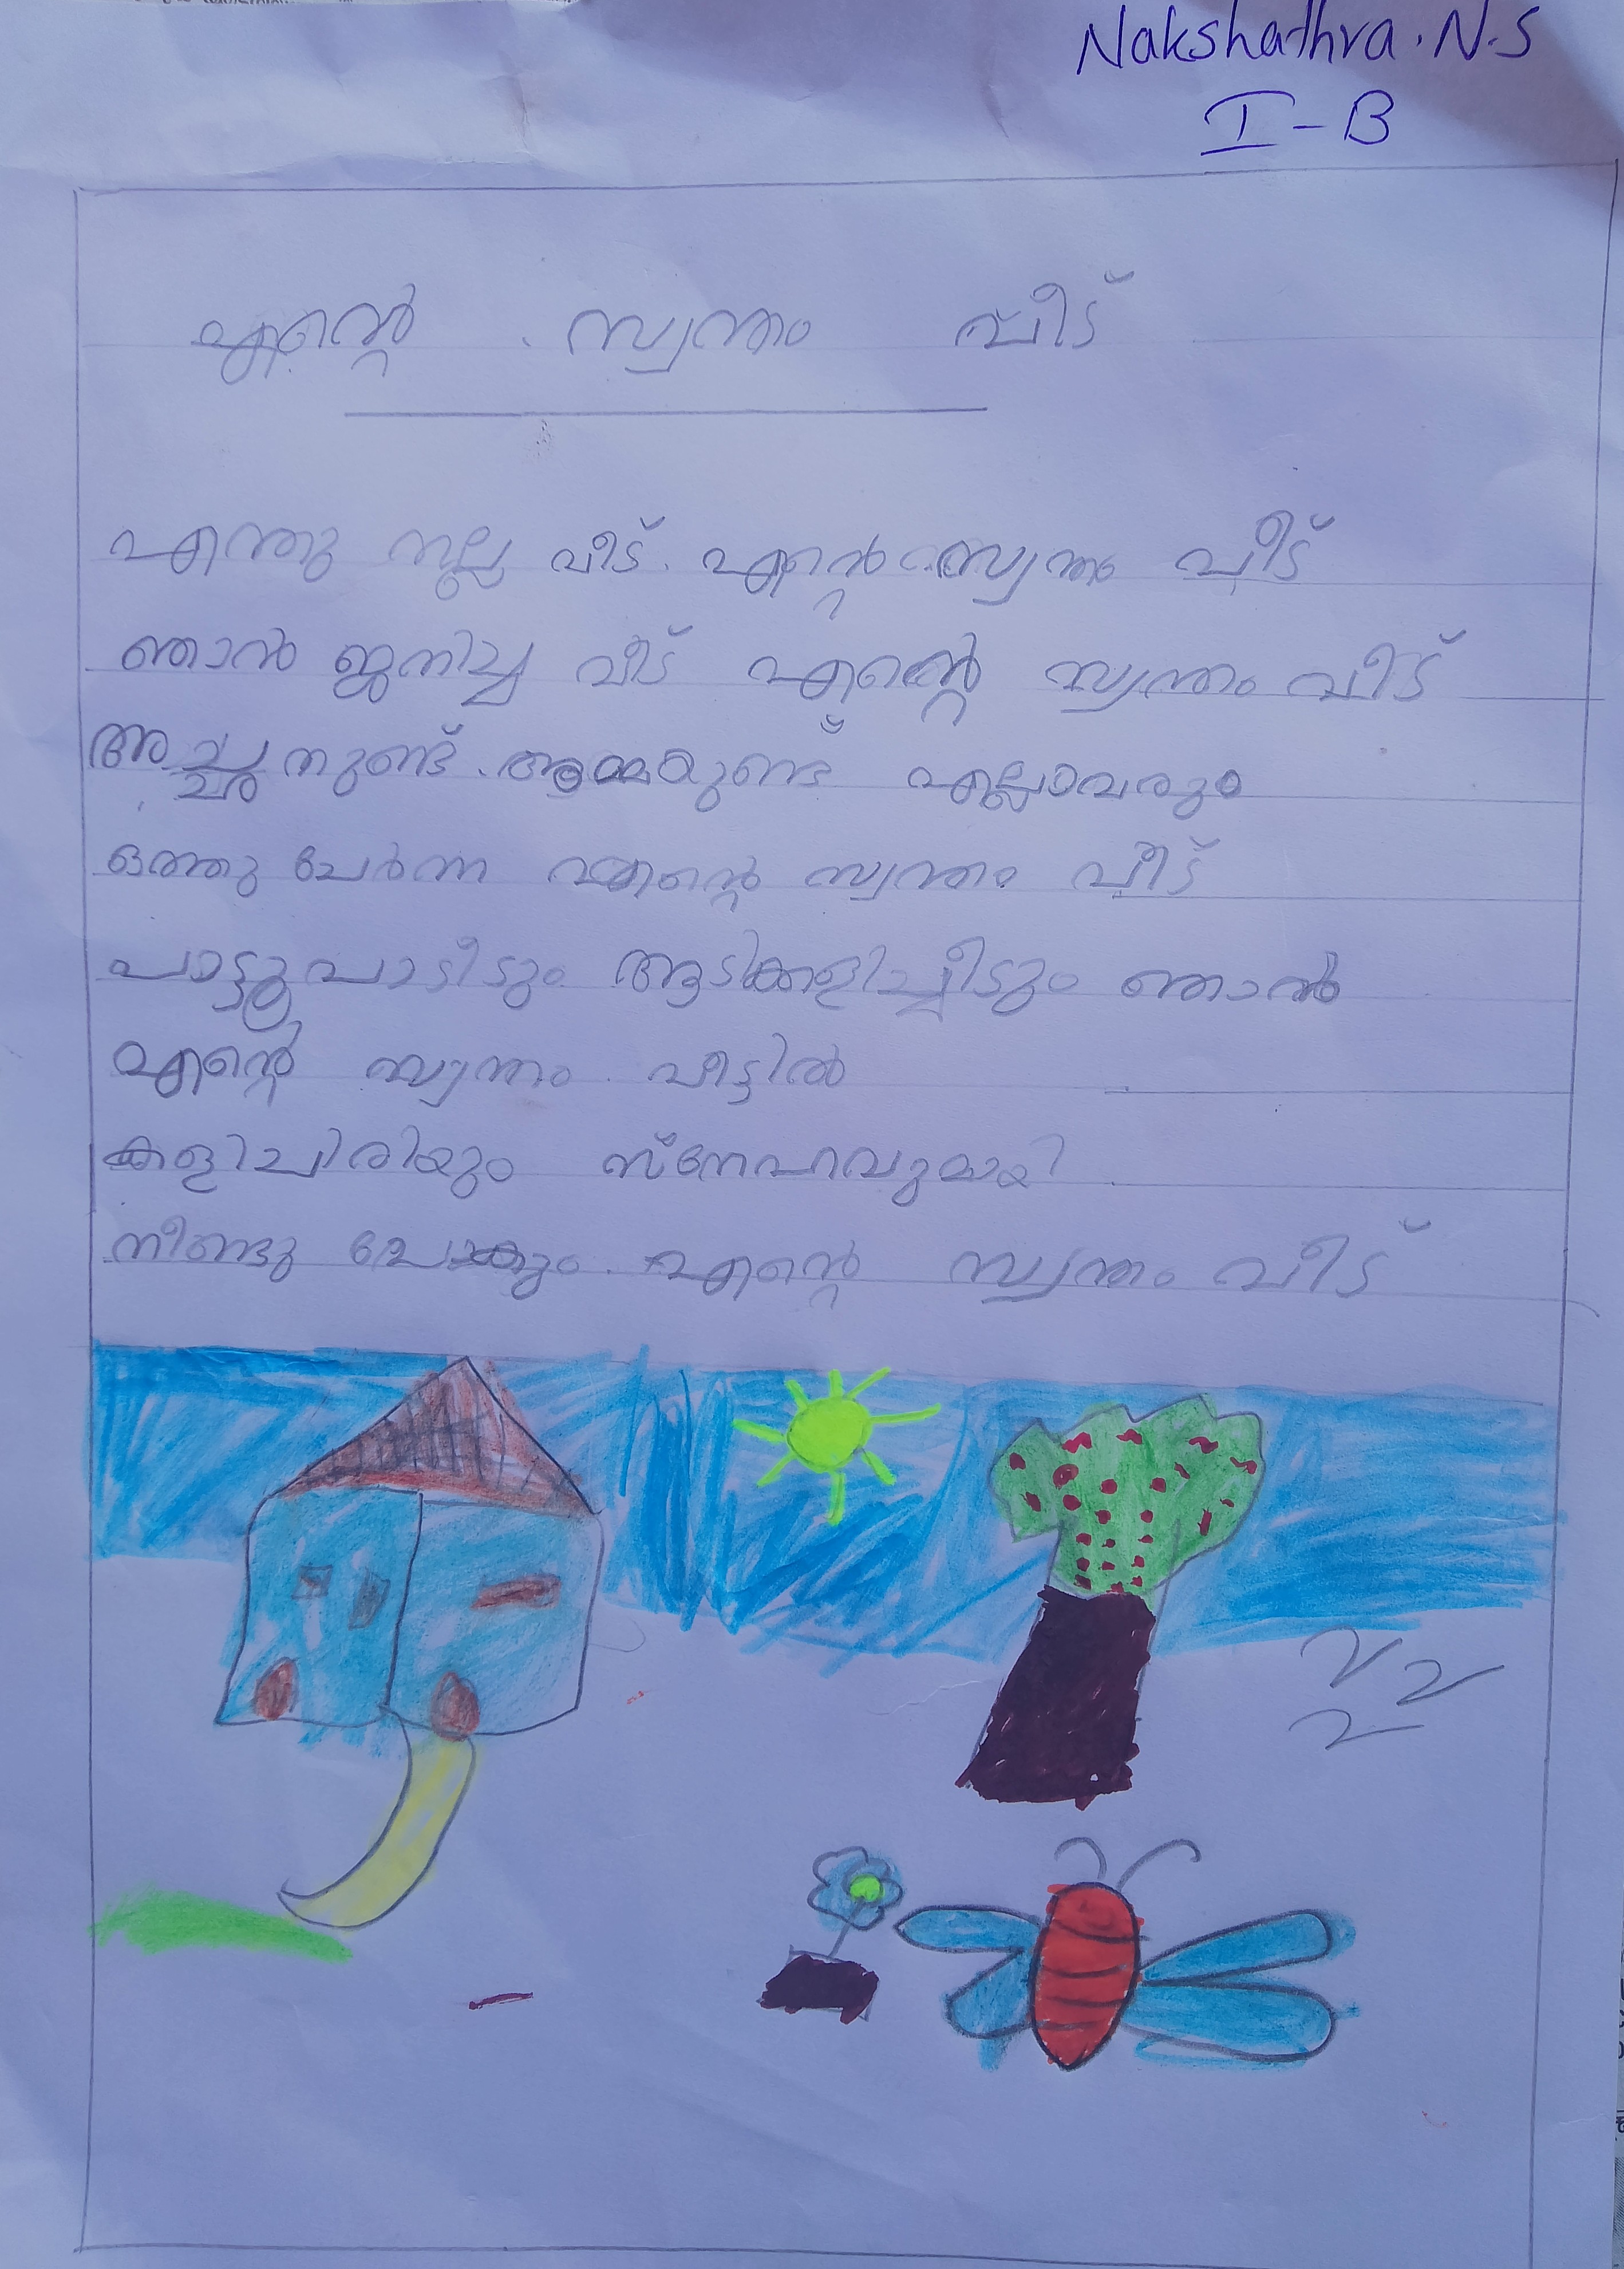 Nakshathra. N.S
I - B
എന്റെ സ്വന്തം വീട്
എന്തു നല്ല വീട്. എന്റെ സ്വന്തം വീട്
ഞാൻ ജനിച്ച വീട് എന്റെ സ്വന്തം വീട്
അച്ഛനുണ്ട്. അമ്മയുണ്ട് എല്ലാവരും
ഒത്തു ചേർന്ന എന്റെ സ്വന്തം വീട്
പാട്ടുപാടീടും ആടിക്കളിച്ചീടും ഞാൻ
എന്റെ സ്വന്തം വീട്ടിൽ
കളിചിരിയും സ്നേഹവുമായി
നീണ്ടു പോകും. എന്റെ സ്വന്തം വീട്